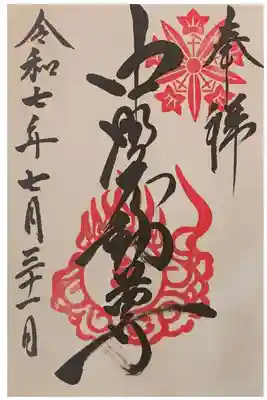 奉拝
中野不動尊
令和七年七月三十一日